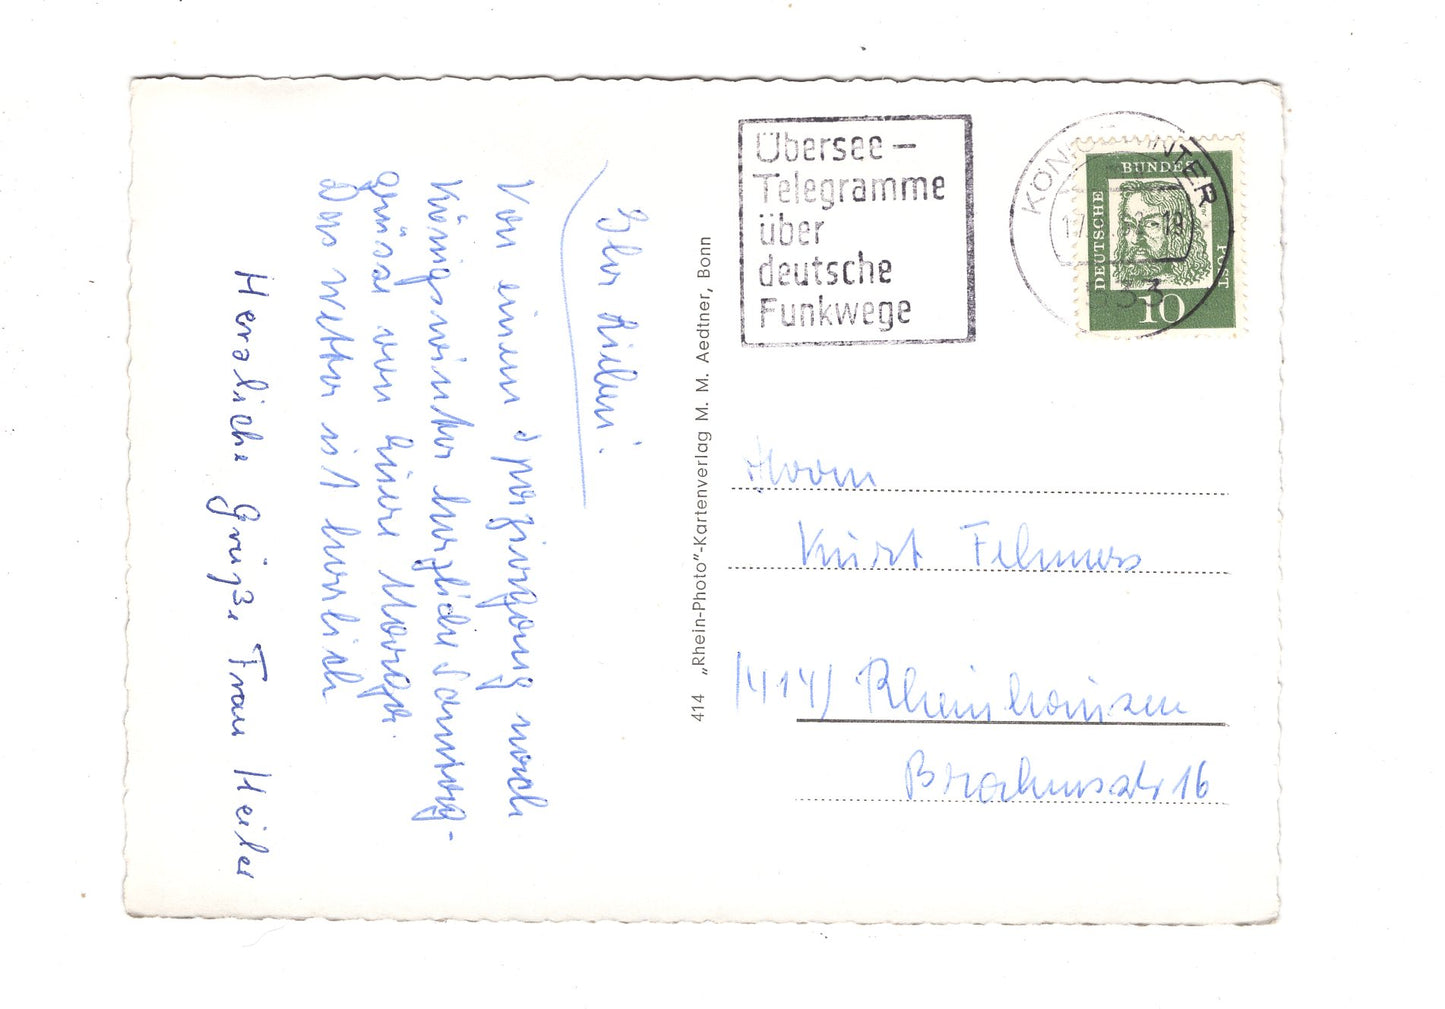 Ihr Lieben!
Von einem Spaziergang nach
Königswinter herzliche Sonntag-
grüsse von Eurer
Das Wetter ist herrlich
Herzliche Grüße, Frau Heiler
414 „Rhein-Photo"-Kartenverlag M. M. Aedtner, Bonn
Übersee-
Telegramme
über
deutsche
Funkwege
533
DEUTSCHE BUNDESPOST
10
Herrn
Kurt Fehmers
(414) Rheinhausen
Brahmsstr 16